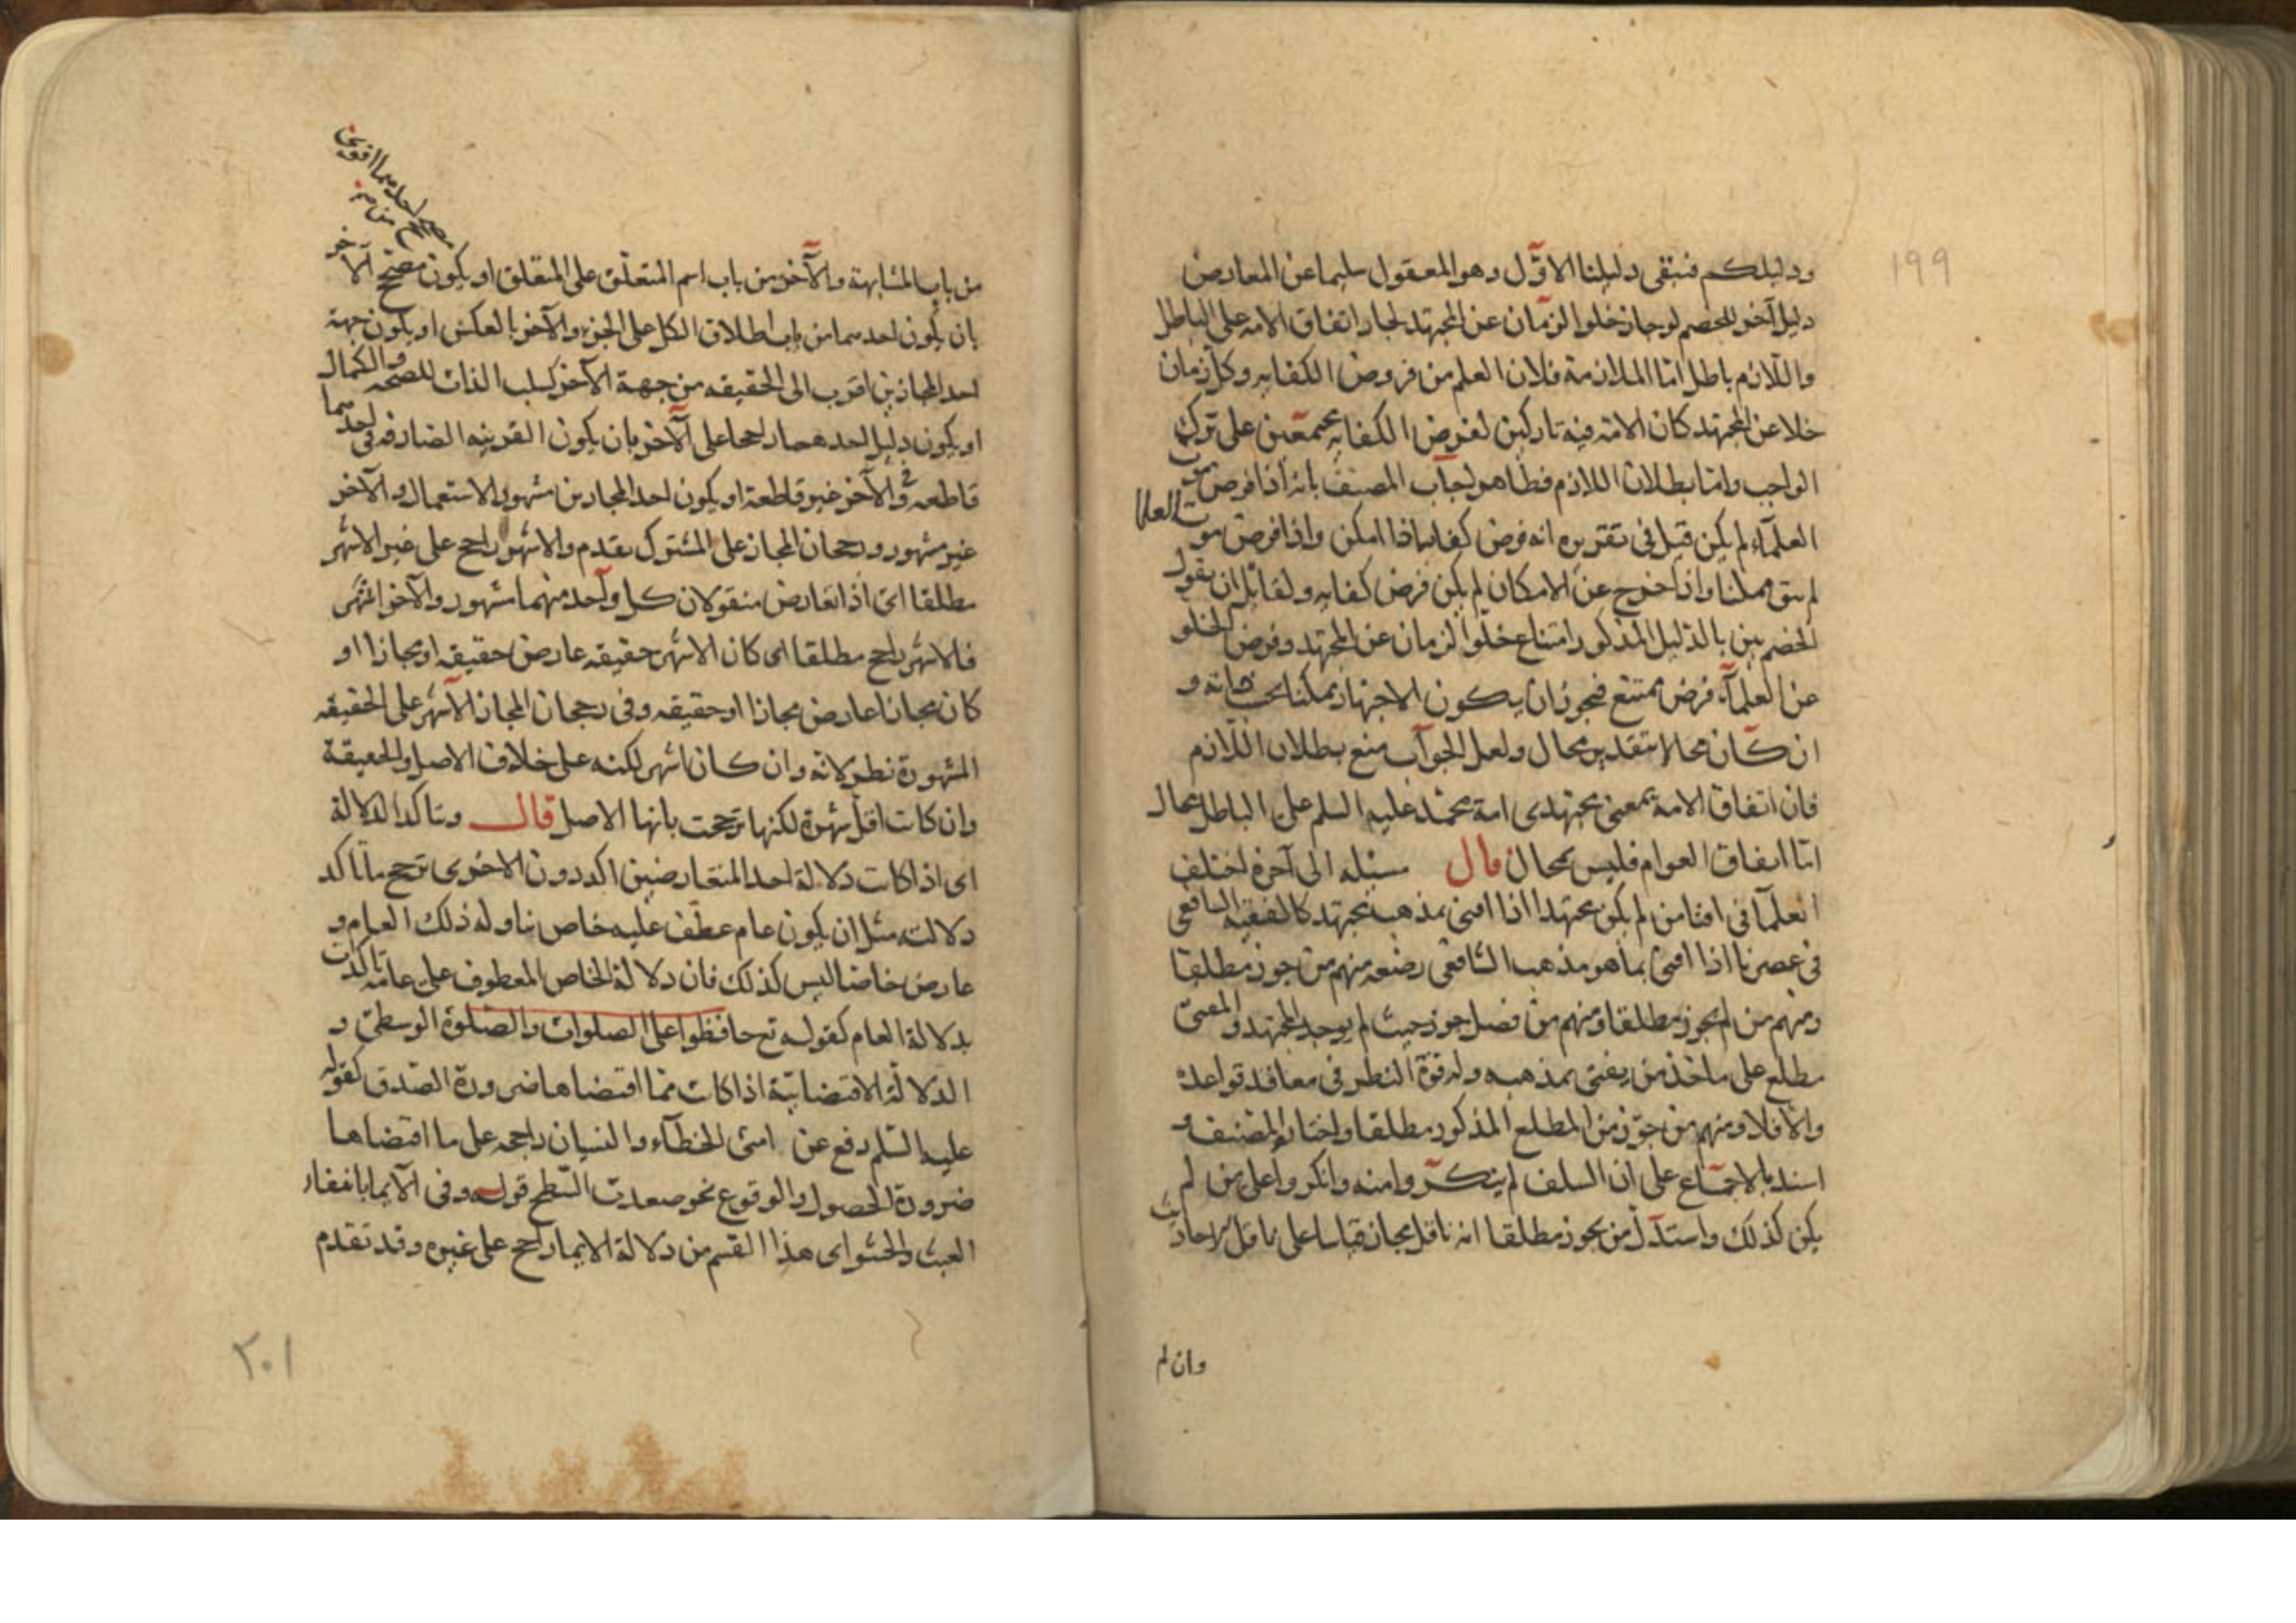 ١٩٩
ودليلكم فتبقى دليلنا الاوّل وهو المعقول سليما عن المعارض
دليل آخر للخصم لو جاز خلو الزمان عن المجتهد لجاز اتفاق الامه على الباطل
واللازم باطل امّا الملازمة فلان العلم من فروض الكفايه وكل زمان
خلا عن المجتهد كان الامه فيه تاركين لفرض الكفايه مجمعين على ترك
الواجب وامّا بطلان اللازم فظاهر اجاب المصنف بانه اذا فرض موت
العلمآء لم يكن قيل فى تقريره انه فرض كفايه اذا امكن واذا فرض موت العلما
لم يبق ممكنا واذا خرج عن الامكان لم يكن فرض كفايه ولقائل ان يقول
الخصم بين بالدليل المذكور امتناع خلو الزمان عن المجتهد وفرض الخلو
عن العلمآء فرض ممتنع فيجوز ان يكون الاجتهاد ممكنا بحسب ذاته و
ان كان محالا بتقدير محال ولعل الجواب منع بطلان اللازم
فان اتفاق الامه بمعنى مجتهدى امة محمّد عليه السلم على الباطل محال
امّا اتفاق العوام فليس بمحال قال مسئله الى آخره اختلف
العلمآ فى افتا من لم يكن مجتهدا اذا افتى بمذهب مجتهد كالفقيه الشافعى
فى عصرنا اذا افتى بما هو مذهب الشافعى رضعه منهم من جوز مطلقا
ومنهم من لم يجوز مطلقا ومنهم من فصل جوز حيث لم يوجد المجتهد والمفتى
مطلع على ماخذ من يفتى بمذهبه وله قوة النظر فى معاقد قواعده
والّا فلا ومنهم من جوّز من المطلع المذكور مطلقا واختاره المصنف و
اسند بالاجماع على ان السلف لم ينكروا منه وانكروا على من لم
يكن كذلك واستدل من يجوز مطلقا انه ناقل فجاز قياسا على ناقل الاحاديث
وان لم
من باب المشابهة والآخر من باب اسم المتعلّق على المتعلق او يكون مصحح الآخر
بان يكون احدهما من باب اطلاق الكل على الجزء والآخر بالعكس او يكون جهة
احد المجازين اقرب الى الحقيقه من جهة الآخر كسلب الذات للصحّه والكمال
او يكون دليل احدهما راجحا على الآخر بان يكون القرينه الصارفه فى احدهما
قاطعه وفى الآخر غير قاطعة او يكون احد المجازين مشهور الاستعمال والآخر
غير مشهور ورجحان المجاز على المشترك بقدم والاشهر راجح على غير الاشهر
مطلقا اى اذا تعارض منقولان كل واحد منهما مشهور والآخر اشهر
فالاشهر راجح مطلقا اى كان الاشهر حقيقه عارض حقيقه او مجازا او
كان مجازا عارض مجازا او حقيقه وفى رجحان المجاز الاشهر على الحقيقه
المشهورة نظر لانه وان كان اشهر لكنه على خلاف الاصل والحقيقة
وان كانت اقل شهرة لكنها ترجحت بانها الاصل قال وبتاكد الدلالة
اى اذا كانت دلالة احد المتعارضين اكد دون الاخرى ترجح ما تاكد
دلالته مثل ان يكون عام عطف عليه خاص تناوله ذلك العام و
عارض خاصا ليس كذلك فان دلالة الخاص المعطوف على عامه تاكدت
بدلالة العام كقوله تع حافظوا على الصلوات والصلوة الوسطى و
الدلالة الاقتضائيّة اذا كانت ممّا اقتضاها ضرورة الصّدق كقوله
عليه السّلم رفع عن امتى الخطآء والنسيان راجحه على ما اقتضاها
ضرورة الحصول والوقوع نحو صعدت السّطح قوله وفى الايما بانتفاء
العبث والحشو اى هذا القسم من دلالة الايما راجح على غيره وقد تقدم
٢٠١